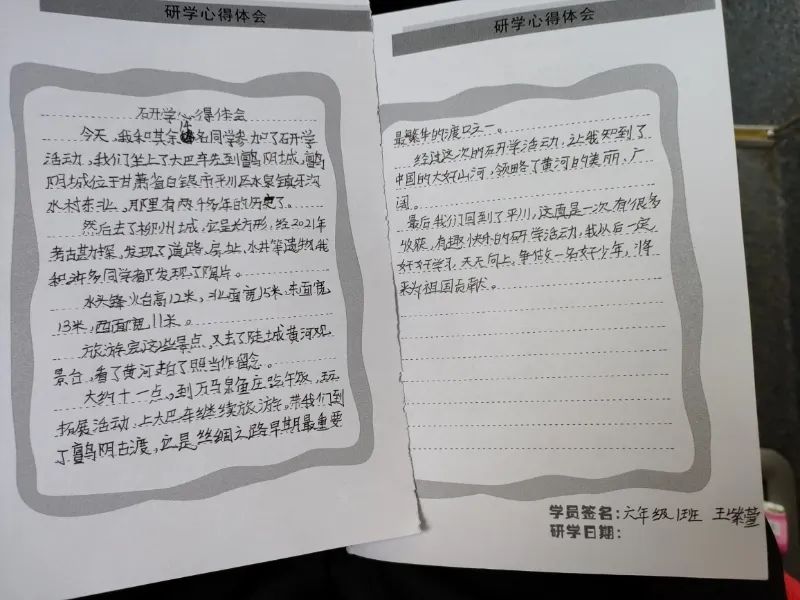 研学心得体会
研学心得体会
今天,我和其余名同学参加了研学
活动,我们坐上了大巴车先到鹯阴城,鹯
阴城位于甘肃省白银市平川区水泉镇牙沟
水村东北。那里有两千多年的历史了。
然后去了柳州城,它呈长方形,经2021年
考古勘探,发现了道路、房址、水井等遗物,我
和许多同学都发现了陶片。
水头烽火台高12米,北面宽15米,东面宽
13米,西面宽11米。
旅游完这些景点,又去了陡城黄河观
景台,看了黄河拍了照当作留念。
大约十一点,到万马泉鱼庄吃午饭,玩
拓展活动,上大巴车继续旅游。带我们到
了鹯阴古渡,它是丝绸之路早期最重要
研学心得体会
最繁华的渡口之一。
经过这次的研学活动,让我知到了
中国的大好山河,领略了黄河的美丽、广
阔。
最后我们回到了平川,这真是一次有很多
收获,有趣快乐的研学活动,我以后一定
好好学习,天天向上,争做一名好少年,将
来为祖国贡献。
学员签名:六年级1班 王紫萱
研学日期: